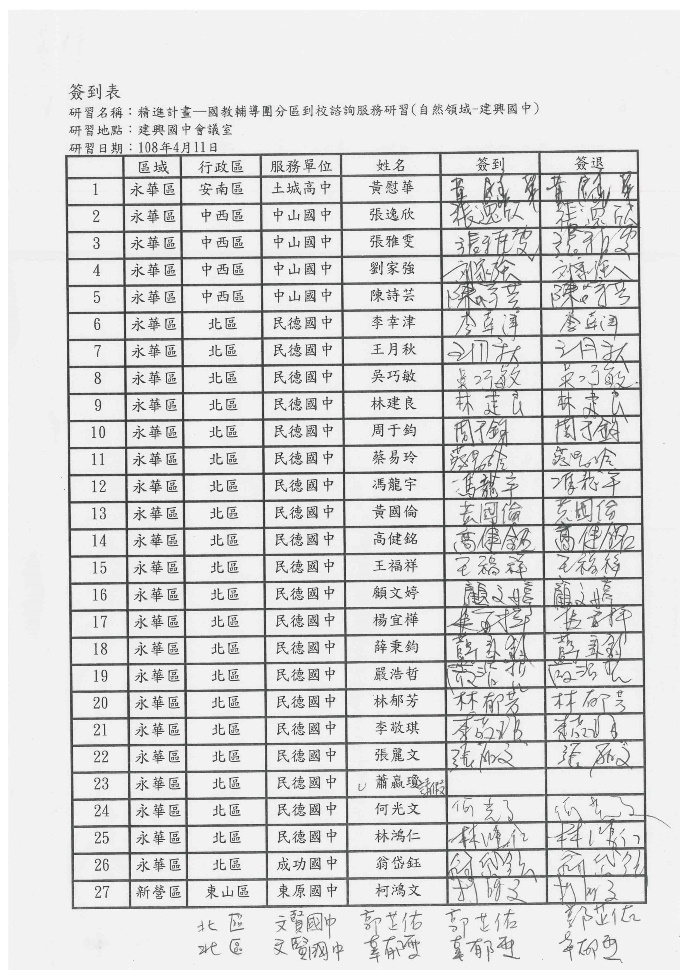 簽到表
研習名稱：精進計畫—國教輔導團分區到校諮詢服務研習(自然領域-建興國中)
研習地點：建興國中會議室
研習日期：108年4月11日
區域 行政區 服務單位 姓名 簽到 簽退
1 永華區 安南區 土城高中 黃慰華 黃慰華 黃慰華
2 永華區 中西區 中山國中 張逸欣 張逸欣 張逸欣
3 永華區 中西區 中山國中 張雅雯 張雅雯 張雅雯
4 永華區 中西區 中山國中 劉家強 劉家強 劉家強
5 永華區 中西區 中山國中 陳詩芸 陳詩芸 陳詩芸
6 永華區 北區 民德國中 李幸津 李幸津 李幸津
7 永華區 北區 民德國中 王月秋 王月秋 王月秋
8 永華區 北區 民德國中 吳巧敏 吳巧敏 吳巧敏
9 永華區 北區 民德國中 林建良 林建良 林建良
10 永華區 北區 民德國中 周于鈞 周于鈞 周于鈞
11 永華區 北區 民德國中 蔡易玲 蔡易玲 蔡易玲
12 永華區 北區 民德國中 馮龍宇 馮龍宇 馮龍宇
13 永華區 北區 民德國中 黃國倫 黃國倫 黃國倫
14 永華區 北區 民德國中 高健銘 高健銘 高健銘
15 永華區 北區 民德國中 王福祥 王福祥 王福祥
16 永華區 北區 民德國中 顧文婷 顧文婷 顧文婷
17 永華區 北區 民德國中 楊宜樺 楊宜樺 楊宜樺
18 永華區 北區 民德國中 薛秉鈞 薛秉鈞 薛秉鈞
19 永華區 北區 民德國中 嚴浩哲 嚴浩哲 嚴浩哲
20 永華區 北區 民德國中 林郁芳 林郁芳 林郁芳
21 永華區 北區 民德國中 李敬琪 李敬琪 李敬琪
22 永華區 北區 民德國中 張麗文 張麗文 張麗文
23 永華區 北區 民德國中 蕭嬴瓊 請假
24 永華區 北區 民德國中 何光文 何光文 何光文
25 永華區 北區 民德國中 林鴻仁 林鴻仁 林鴻仁
26 永華區 北區 成功國中 翁岱鈺 翁岱鈺 翁岱鈺
27 新營區 東山區 東原國中 柯鴻文 柯鴻文 柯鴻文
北區 文賢國中 郭芷佑 郭芷佑 郭芷佑
北區 文賢國中 辜郁雯 辜郁雯 辜郁雯